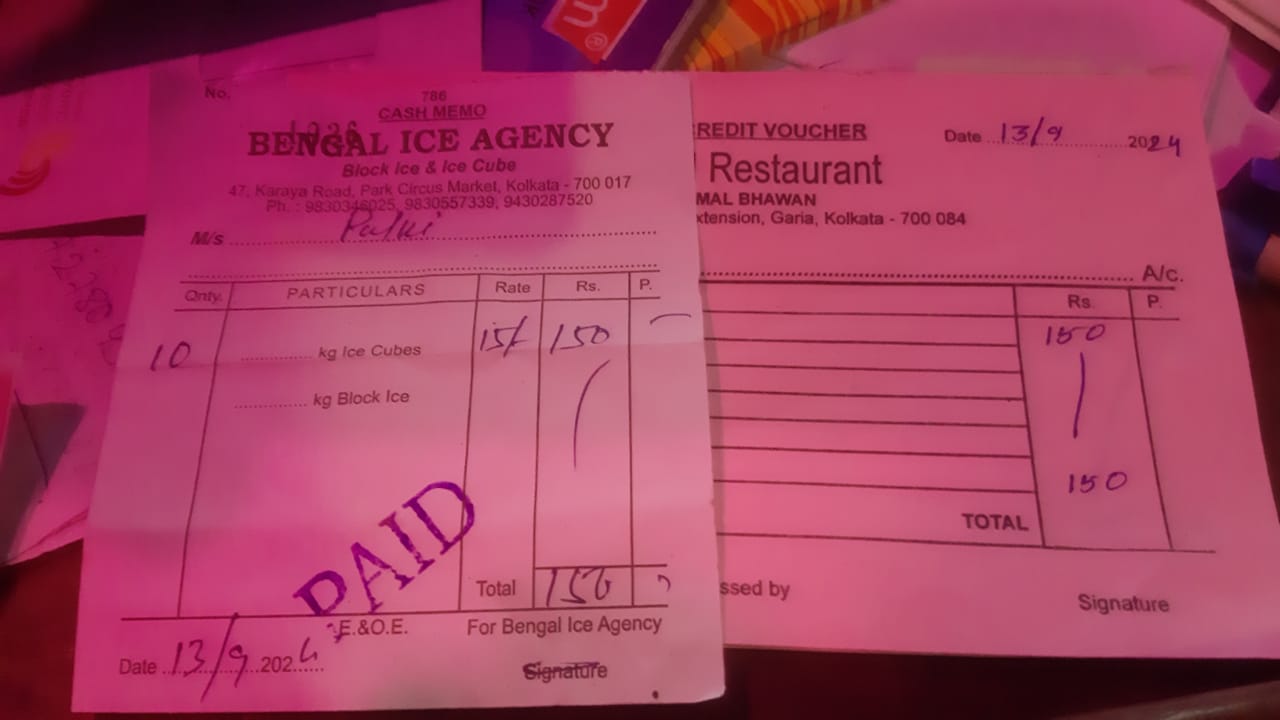 No.
786
CASH MEMO
BENGAL ICE AGENCY
Block Ice & Ice Cube
47, Karaya Road, Park Circus Market, Kolkata - 700 017
Ph. : 9830346025, 9830557339, 9430287520
M/s Palki
Qnty. PARTICULARS Rate Rs. P.
10 kg Ice Cubes 15/- 150
kg Block Ice
PAID
Total 150
E.&O.E. For Bengal Ice Agency
Date 13/9 2024
Signature
REDIT VOUCHER
Date 13/9 2024
Restaurant
MAL BHAWAN
xtension, Garia, Kolkata - 700 084
A/c.
Rs. P.
150
150
TOTAL
ssed by
Signature